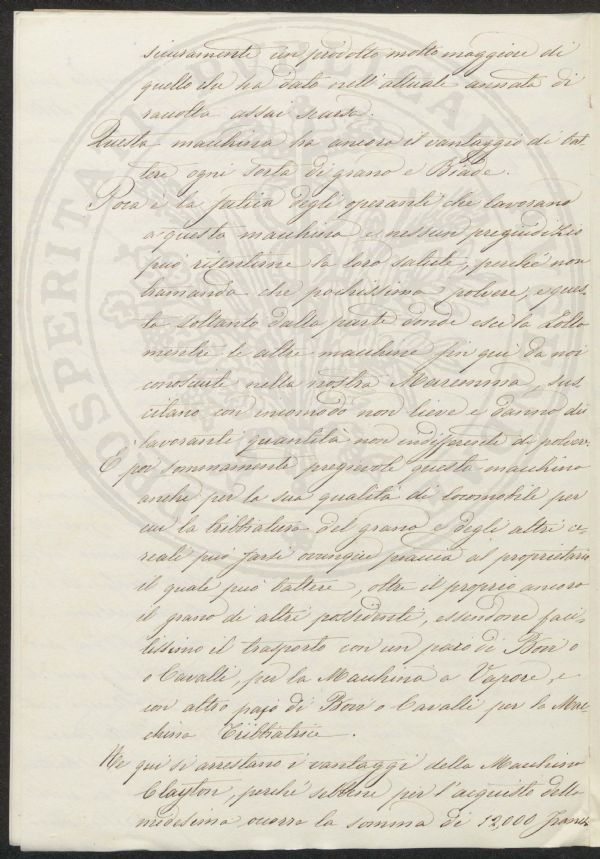 sicuramente un prodotto molto maggiore di
quello che ha dato nell'attuale annata di
raccolta assai scarsa.
Questa macchina ha ancora il vantaggio di bat-
tere ogni sorta di grano e Biade.
Poca è la fatica degli operanti che lavorano
a questa macchina e nessun pregiudizio
può risentirne la loro salute, perché non
tramanda che pochissima polvere, e ques-
ta soltanto dalla parte donde esce la Lolla
mentre le altre macchine fin qui da noi
conosciute nella nostra Maremma, sus-
citano con incomodo non lieve e danno di
lavoranti quantità non indifferente di polvere.
È poi sommamente pregievole questa macchina
anche per la sua qualità di locomobile per
cui la tribbiatura del grano e degli altri ce-
reali può farsi ovunque piaccia al proprietario
il quale può battere, oltre il proprio ancora
il grano di altri possidenti, essendone faci-
lissimo il trasporto con un pajo di Bovi o
o Cavalli, per la Macchina a Vapore, e
con altro pajo di Bovi o Cavalli per la Mac-
china Tribbiatrice.
Ne qui si arrestano i vantaggi della Macchina
Clayton, perché sebbene per l'acquisto della
medesima occorra la somma di 12,000 franchi
PROSPERITAS